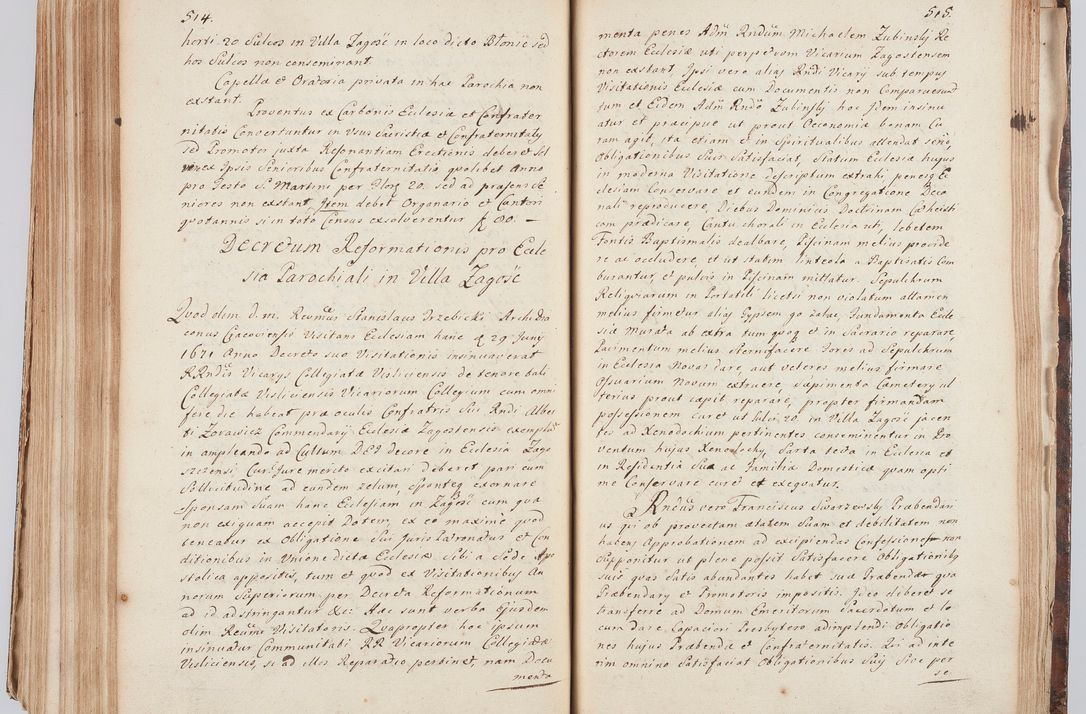 514.
horti 20 Sulcos in Villa Zagość in loco dicto Błonie sed
hos Sulcos non conseminant.
Capellæ et Oratoria privata in hac Parochia non
exstant.
Proventus ex Carbonis Ecclesiæ et Confrater
nitatis Convertuntur in Usus Sacristiæ et Confraternitatis
sed Promotor juxta Resonantiam Erectionis deberet Sol
vere Ipsis Senioribus Confraternitatis quolibet Anno
pro Festo S. Martini per flor 20. sed ad præsens Se
niores non exstant, Item debet Organario et Cantori
quotannis si in toto Census exsolverentur
Decretum Reformationis pro Eccle
sia Parochiali in Villa Zagość
Quod olim d. m. Revmus Stanislaus Trzebicki Archidia
conus Cracoviensis Visitans Ecclesiam hanc d 29 Junij
1671 Anno Decreto suo Visitationis insinuaverat
RRndis Vicarys Collegiatæ Visliciensis de tenore tali
Collegiatæ Visliciensis Vicariorum Collegium cum omni
fere die habeat præ oculis Confratris Sui Rndi Alber
ti Zorawicz Commendarij Ecclesiæ Zagostensis exemplũ
in ampleando ad Cultum DEI decore in Ecclesia Zago
stensi Cur. Jure merito excitari deberet pari cum
Sollicitudine ad eundem zelum, Sponteq exornare
Sponsam Suam hanc Ecclesiam in Zagość cum qua
non exiguam accepit Dotem, ex eo maxime quod
teneatur ex Obligatione Sui Juris Patronatus et Con
ditionibus in Unione dictæ Ecclesiæ Sibi a Sede Apo
stolica appositis, tum et quod ex Visitationibus An
norum Superiorum per Decreta Reformationum
ad id adstringantur &c: Hæc sunt verba Ejusdem
olim Revmi Visitatoris. Quapropter hoc ipsum
insinuatur Communitati RR Vicariorum Collegiatæ
Visliciensis, si ad illos Reparatio pertinet, nam Docu
menta
515.
menta penes Adm Rndum Michaelem Zubinsky Re
ctorem Ecclesiæ uti perpetuum Vicarium Zagostensem
non exstant, Ipsi vero alias Rndi Vicarij sub tempus
Visitationis Ecclesiæ cum Documentis non Comparuerunt
tum et Eidem Adm Rndo Zubinsky hoc Idem insinu
atur et præcipue ut prout Oeconomiæ bonam Cu
ram agit, ita etiam et in Spiritualibus attendat serio,
Obligationibus Suis Satisfaciat, Statum Ecclesiæ hujus
in moderna Visitatione descriptum extrahi penesq Ec
clesiam Conservare et eundem in Congregatione Deca
nali reproducere, Diebus Dominicis Doctrinam Catheisti
cam prædicare, Cantu chorali in Ecclesia uti, lebetem
Fontis Baptismalis dealbare, Piscinam melius provide
re ac occludere et ut statim linteola a Baptisatis Com
burantur, et pulvis in Piscinam mittatur. Sepulchrum
Religviarum in Portatili licet si non violatum attamen
melius firmetur alias Gypsem go zalać, Fundamenta Eccle
siæ Murata ab extra tum quoq et in Sacrario reparare,
Pavimentum melius sternefacere Fores ad Sepulchrum
in Ecclesia Novas dare, aut veteres melius firmare
Ossuarium Novum extruere, Sæpimento Cæmeterij ul
terius prout cæpit reparare, propter firmandam
possessionem curet ut Sulci 20. in Villa Zagość jacen
tes ad Xenodochium pertinentes conseminentur in Pro
ventum hujus Xenodochij, Sarta tecta in Ecclesia et
in Residentia Sua ac Familia Domestica quam opti
me Conservare curet et exequatur.
Rndus vero Franciscus Swarzewsky Præbendari
us qui ob provectam ætatem Suam et debilitatem non
habens Approbationem ad excipiendas Confessiones non
Supponitur ut plene possit Satisfacere Obligationibus
suis quas Satis abundantes habet suæ Præbendæ qua
Præbendarij et Promotoris impositis. Ideo deberet se
transferre ad Domum Emeritorum Sacerdotum et lo
cum dare Capaciori Presbytero adimplendi Obligatio
nes hujus Præbendæ et Confraternitatis. Qui ad inte
rim omnino Satisfaciat Obligationibus Suis Sive per
se